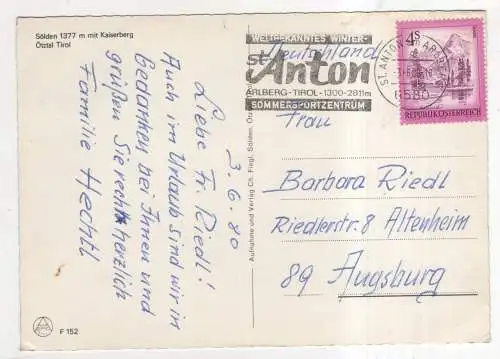 Sölden 1377 m mit Kaiserberg
Ötztal Tirol
3. 6. 80
Liebe Fr. Riedl!
Auch im Urlaub sind wir in
Gedanken bei Ihnen und
grüßen Sie recht herzlich
Familie Hechtl
F 152
Aufnahme und Verlag Ch. Fiegl, Sölden, Ötz
WELTBEKANNTES WINTER-
st. Anton
ARLBERG-TIROL-1300-2811m
SOMMERSPORTZENTRUM
ST. ANTON
6580
4S
REPUBLIK ÖSTERREICH
Deutschland
Frau
Barbara Riedl
Riedlerstr. 8 Altenheim
89 Augsburg